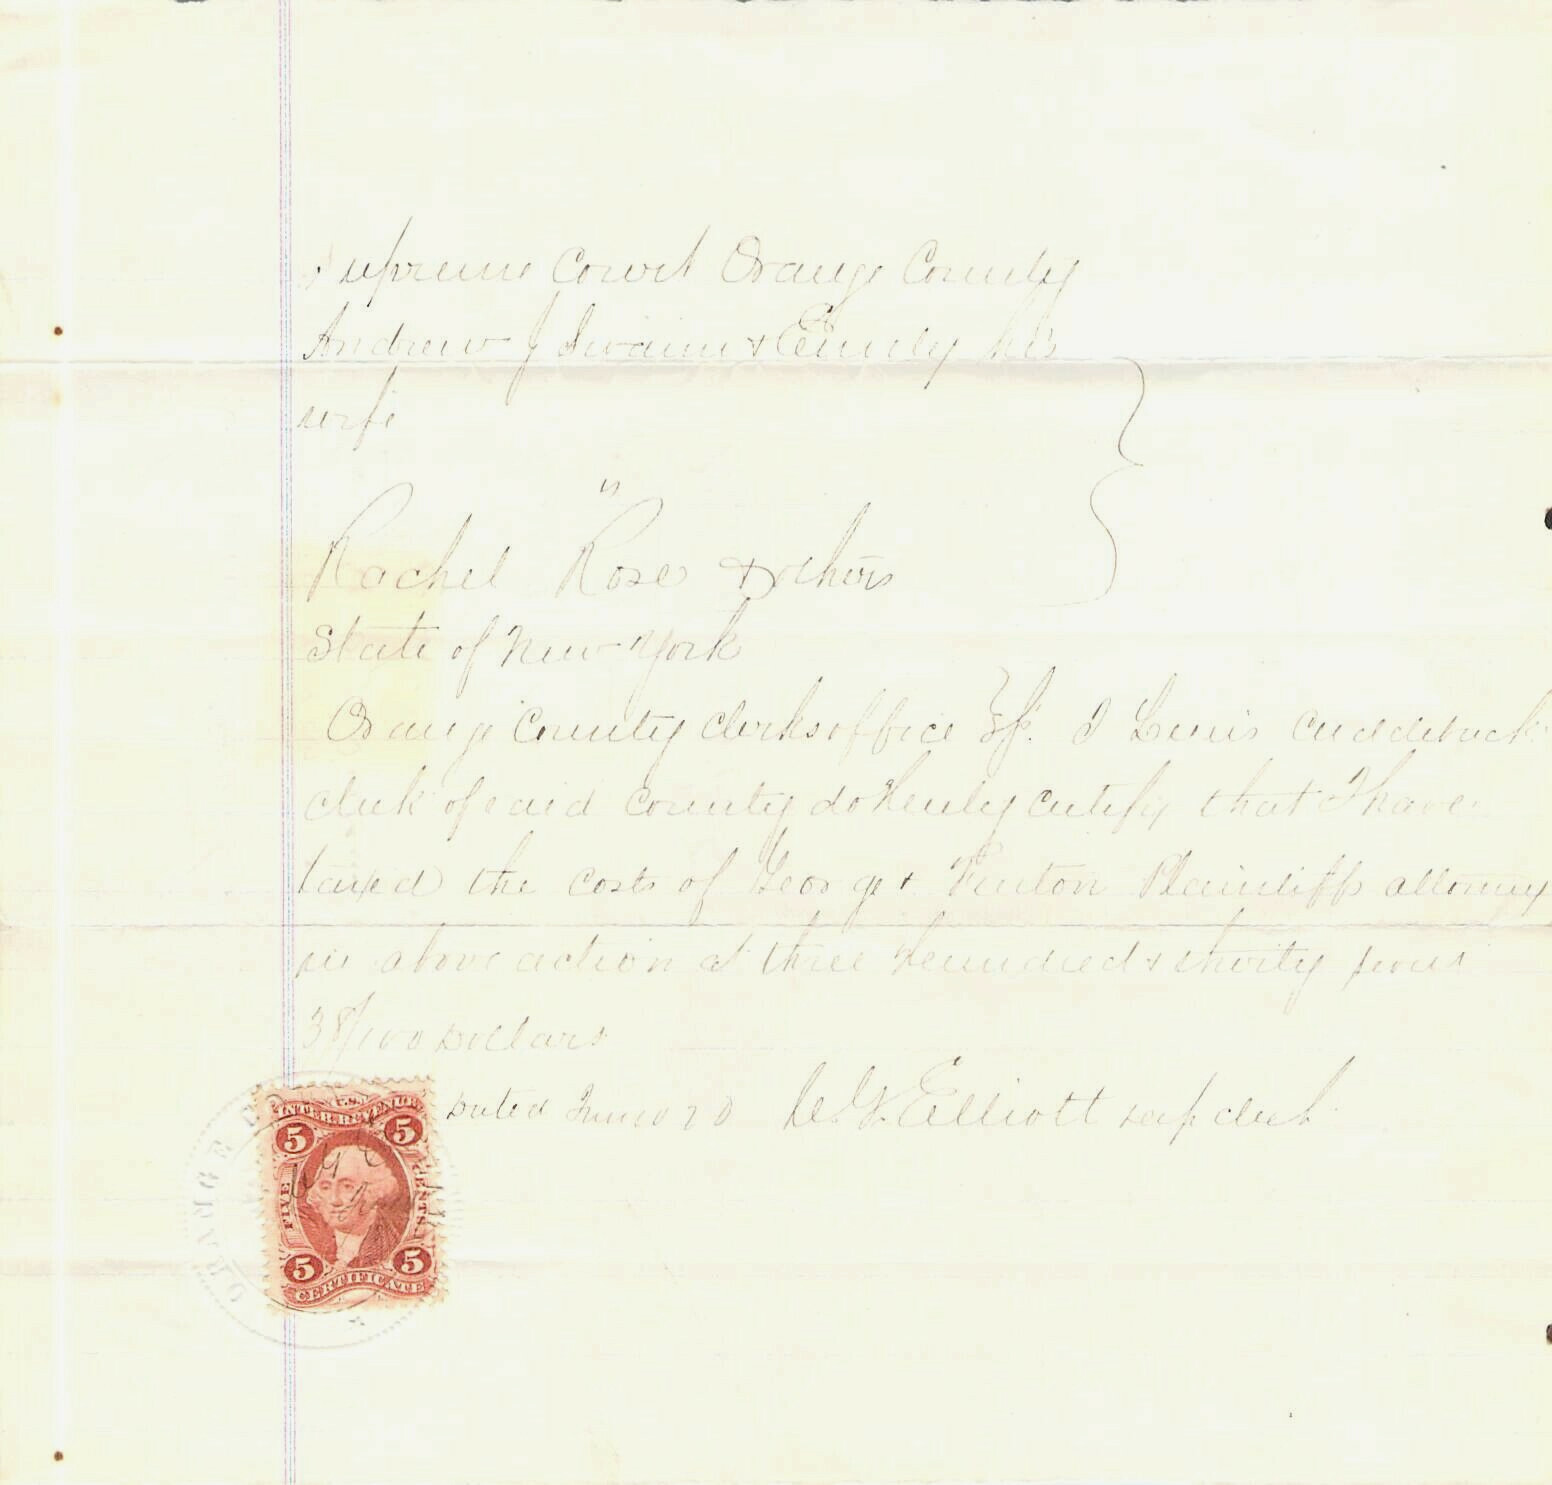 Supreme Court Orange County
Andrew J Swaim & Emily his
wife
vs
Rachel Rose & others
State of New York
Orange County Clerks office } SS. I Lewis Cuddeback
clerk of said County do Herby certify that I have
taxed the costs of George & Fenton Plaintiffs attorney
in above action at three Hundred & thirty four
38/100 Dollars
Dated June 10 70 W G Elliott Dep clerk
U.S.
INTER. REVENUE
5 5
FIVE CENTS
5 5
CERTIFICATE
ORANGE CO